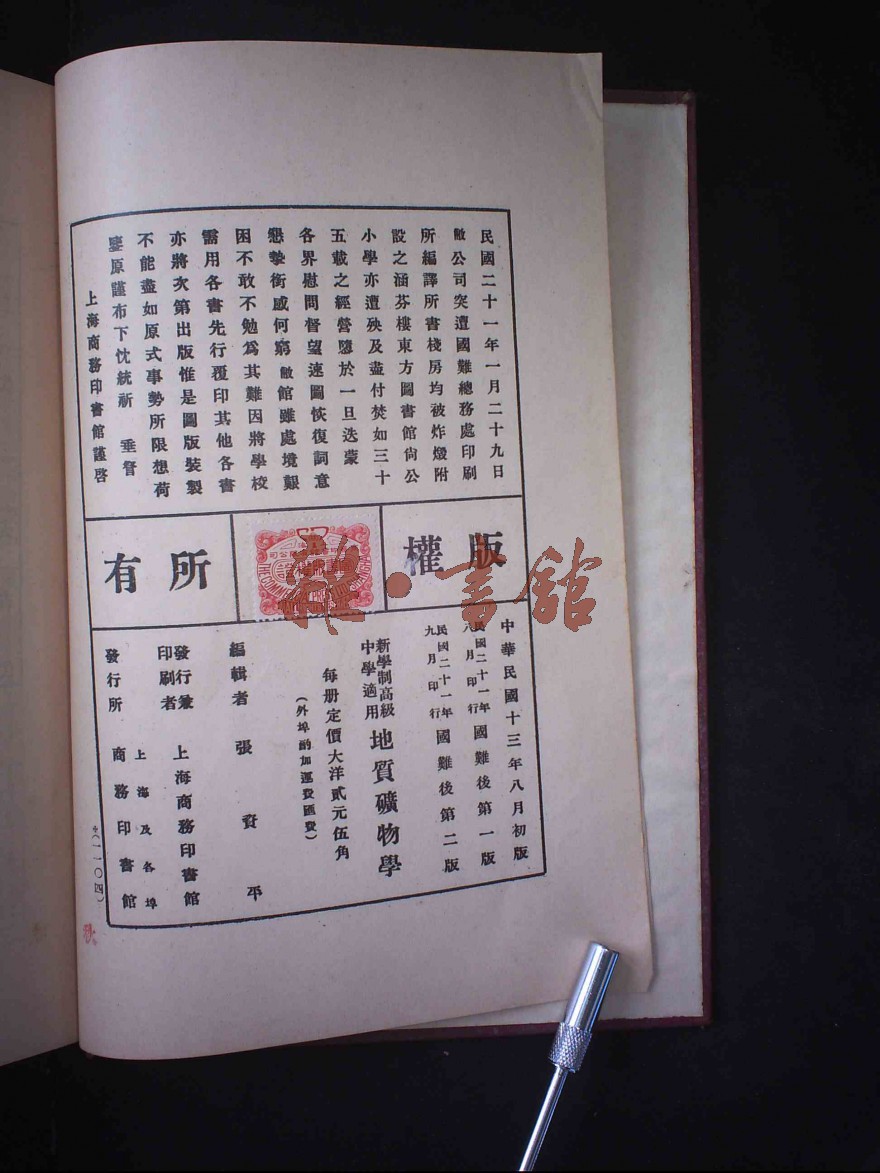 民國二十一年一月二十九日
敝公司突遭國難總務處印刷
所編譯所書棧房均被炸燬附
設之涵芬樓東方圖書館尙公
小學亦遭殃及盡付焚如三十
五載之經營隳於一旦迭蒙
各界慰問督望速圖恢復詞意
懇摯銜感何窮敝館雖處境艱
困不敢不勉爲其難因將學校
需用各書先行覆印其他各書
亦將次第出版惟是圖版裝製
不能盡如原式事勢所限想荷
鑒原謹布下忱統祈 垂詧
上海商務印書館謹啓
版權
所有
中華民國十三年八月初版
民國二十一年八月印行 國難後第一版
民國二十一年九月印行 國難後第二版
新學制高級中學適用 地質礦物學
每册定價大洋貳元伍角
(外埠酌加運費匯費)
編輯者 張資平
發行兼印刷者 上海商務印書館
發行所 上海及各埠 商務印書館
(一一〇四)
秋
書館